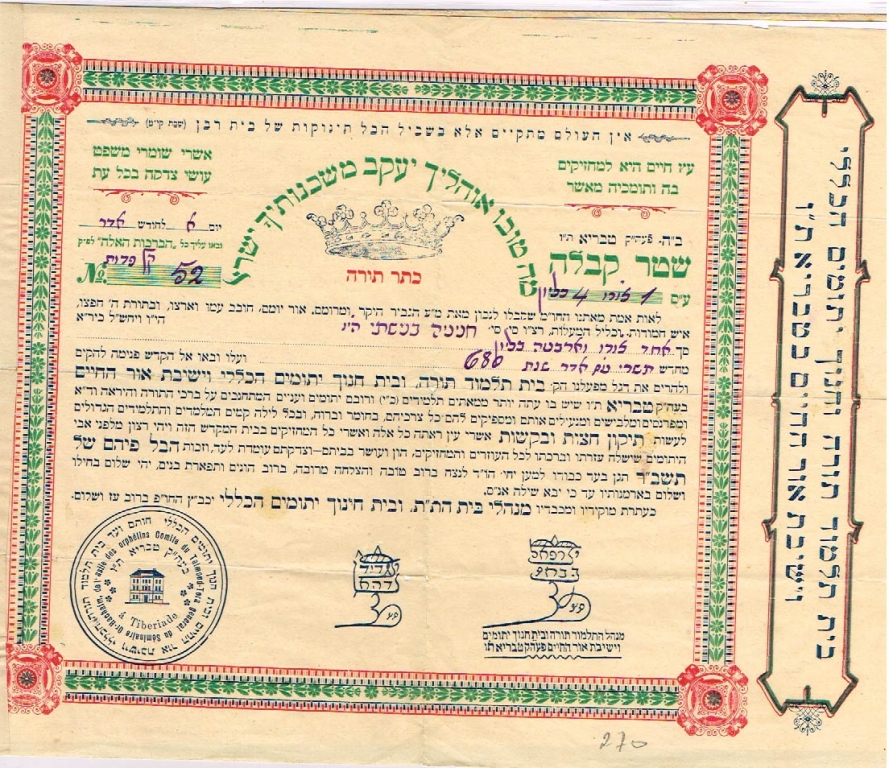 אין העולם מתקיים אלא בשביל הבל תינוקות של בית רבן (שבת קי״ט)
עץ חיים היא למחזיקים
בה ותומכיה מאושר
אשרי שומרי משפט
עושי צדקה בכל עת
מה טובו אוהליך יעקב משכנותיך ישראל
כתר תורה
ב״ה. פעה״ק טבריא ת״ו
שטר קבלה
ע״ס
יום א לחודש אדר
ובאו עליך כל ״הברכות האלה״ לפ״ק
№. 52
לאות אמת מאתנו החו״מ שקבלנו לנכון מאת מ״ע הגביר היקר, ומרומם, אור יומם, חובב עמו וארצו, ובתורת ה׳ חפצו,
איש חמודות, וכליל המעלות,
סך
מחדש תשרי עם אדר שנת 680 ועלו ובאו אל הקדש פנימה להקים
ולהרים את דגל מפעלנו הק׳ בית תלמוד תורה, ובית חנוך יתומים הכללי וישיבת אור החיים
בעה״ק טבריא ת״ו שיש בו עתה יותר ממאתים תלמידים (כ״י) ורובם יתומים ועניים המתחנכים על ברכי התורה והיראה וד״א
ומפרנסים ומלבישים ומנעילים אותם ומספיקים להם כל צרכיהם, בחומר וברוח, ובכל לילה קמים המלמדים והתלמידים הגדולים
לעשות תיקון חצות ובקשות אשרי עין ראתה כל אלה ואשרי כל המחזיקים בבית המקדש הזה ויהי רצון מלפני אבי
היתומים שישלח עזרתו וברכתו לכל העוזרים והמחזיקים, הון ועושר בביתם–וצדקתם עומדת לעד, וזכות הבל פיהם של
תשב״ר תגן בעד כבודו למען יחי׳ הו״ד לנצח ברוב טובה והצלחה מרובה, ברוב הונים ותפארת בנים, יהי שלום בחילו
ושלום בארמנותיו עד כי יבא שילה אנ״ס,
כעתרת מוקיריו ומכבדיו מנהלי בית הת״ת, ובית חינוך יתומים הכללי יכב״ץ החו״פ ברוב עז ושלום.
à Tiberiade
מנהל התלמוד תורה ובית חנוך יתומים
וישיבת אור החיים פעה״ק טבריא תו
270
בית תלמוד תורה וחנוך יתומים הכללי
וישיבת אור החיים בטבריא ת״ו